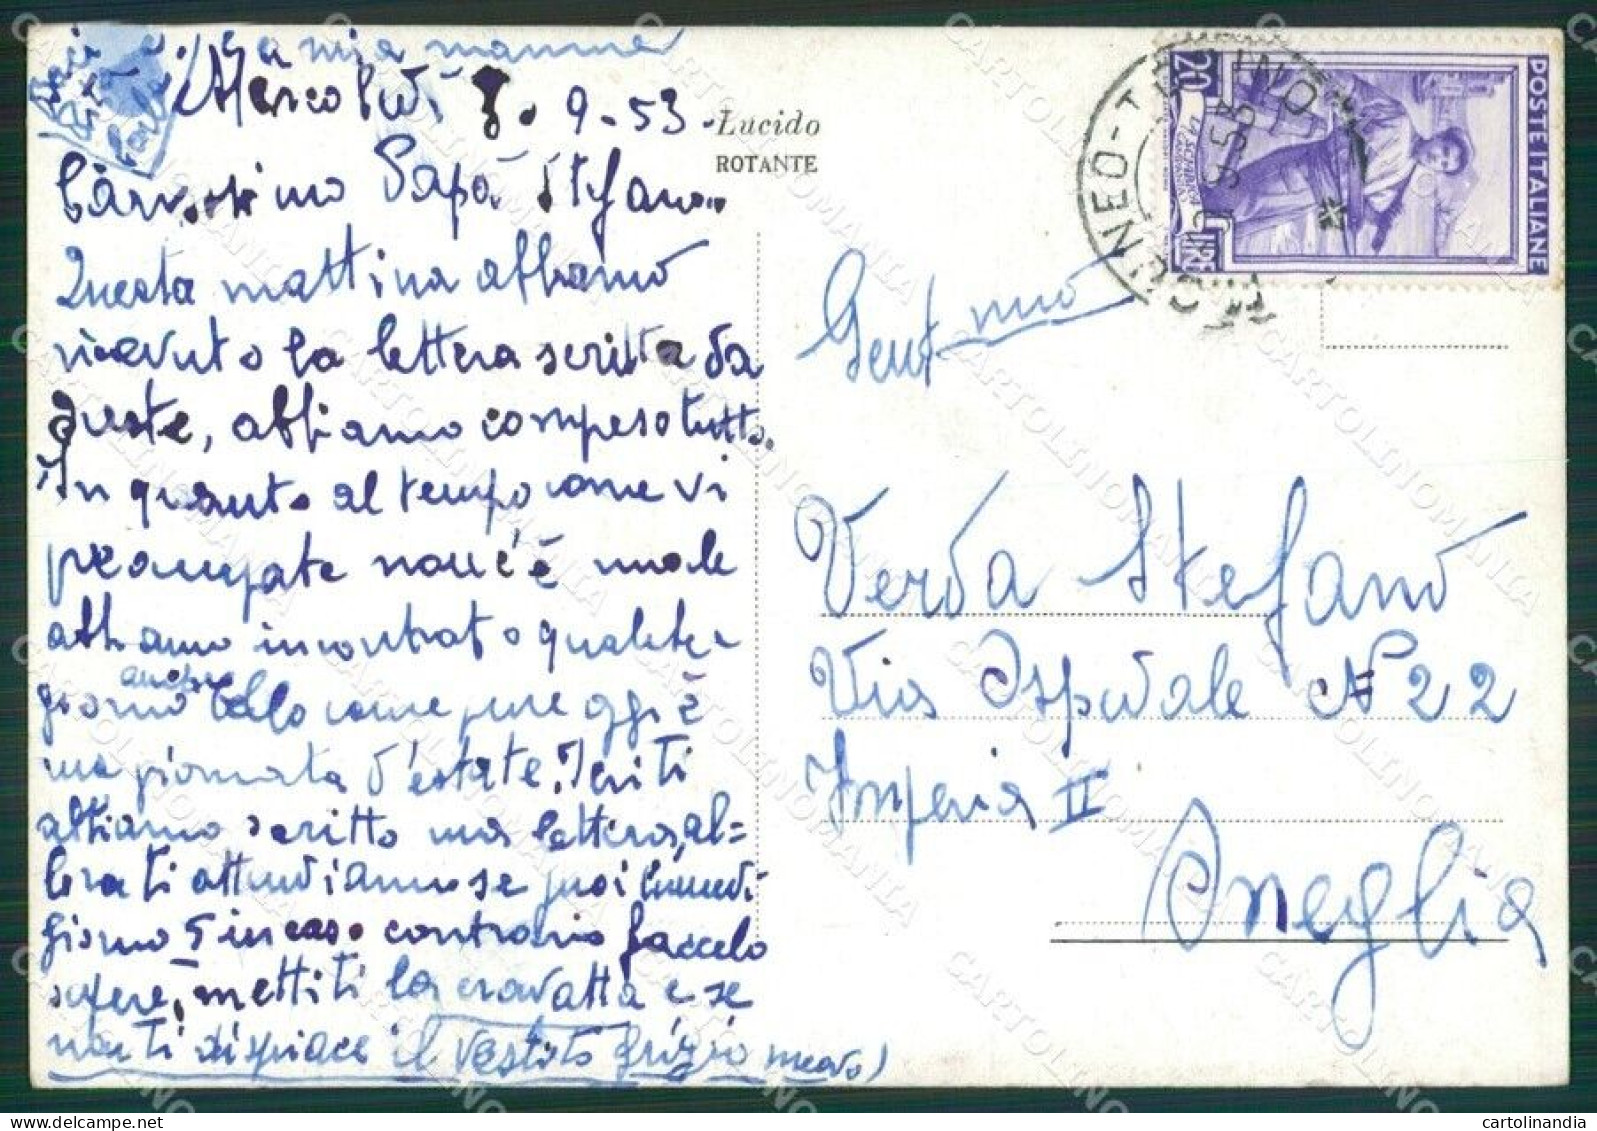 Baci
a mia mamma
Mercoledì 9-53.
Carissimo Papà Stefano..
Questa mattina abbiamo
ricevuto la lettera scritta da
Oreste, abbiamo compreso tutto.
In quanto al tempo come vi
preoccupate non c'è male
abbiamo incontrato qualche
anche
giorno bello come pure oggi è
una giornata d'estate. Ieri ti
abbiamo scritto una lettera, al=
lora ti attendiamo se puoi lunedì
giorno in caso contrario faccelo
sapere, mettiti la cravatta e se
non ti dispiace il vestito grigio nuovo)
Lucido
ROTANTE
20
POSTE ITALIANE
LIRE
9-53
Gent mo
Verda Stefano
Via Ospedale N° 22
Imperia II
Oneglia
CARTOLINOMANIA
cartolinandia